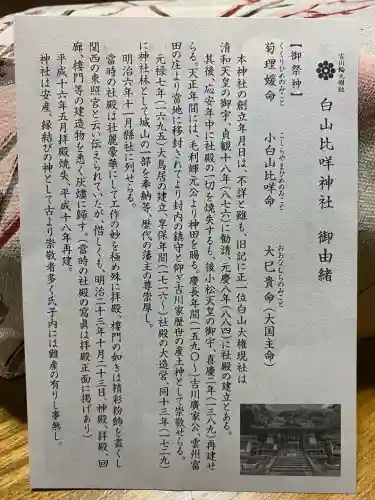 吉川輪元總社
白山比咩神社　御由緒
【御祭神】
くくりひめのみこと　こしらやまひめのみこと　おおなむちのみこと
菊理媛命　小白山比咩命　大已貴命(大国主命)
本神社の創立年月日は、不詳と雖も、旧記に正一位白山大権現社は
清和天皇の御宇、貞観十八年(八七六)に勧請、元慶八年(八八四)に社殿の建立とある。
其後、応安年中に社殿の一切を焼失するも、後小松天皇の御宇、喜慶二年(一三八九)再建せ
らる。天正年間には、毛利輝元公より神田を賜る。慶長年間(一五九〇~)吉川廣家公、雲州富
田の庄より當地に移封されてより封内の鎮守と仰ぎ吉川家歴世の産土神として崇敬せらる。
元禄七年(一六九五)大鳥居の建立、享保年間(一七一六~)社殿の大造営、同十三年(一七二九)
に神社林として城山の一部を奉納等、歴代の藩主の尊崇厚し。
明治六年十一月縣社に列せらる。
當時の社殿は壮麗豪華にして工作の妙を極め殊に拝殿、樓門の如きは精彩粉飾を盡くし
関西の東照宮と云い伝えられていたが、惜しくも、明治二十三年十月二十三日、神殿、拝殿、回
廊、樓門等の建造物を悉く灰燼に歸す。(當時の社殿の寫眞は拝殿正面に掲げあり)
平成十六年五月拝殿焼失、平成十八年再建。
神社は安産、縁結びの神として古より崇敬者多く氏子内には難産の有りし事無し。